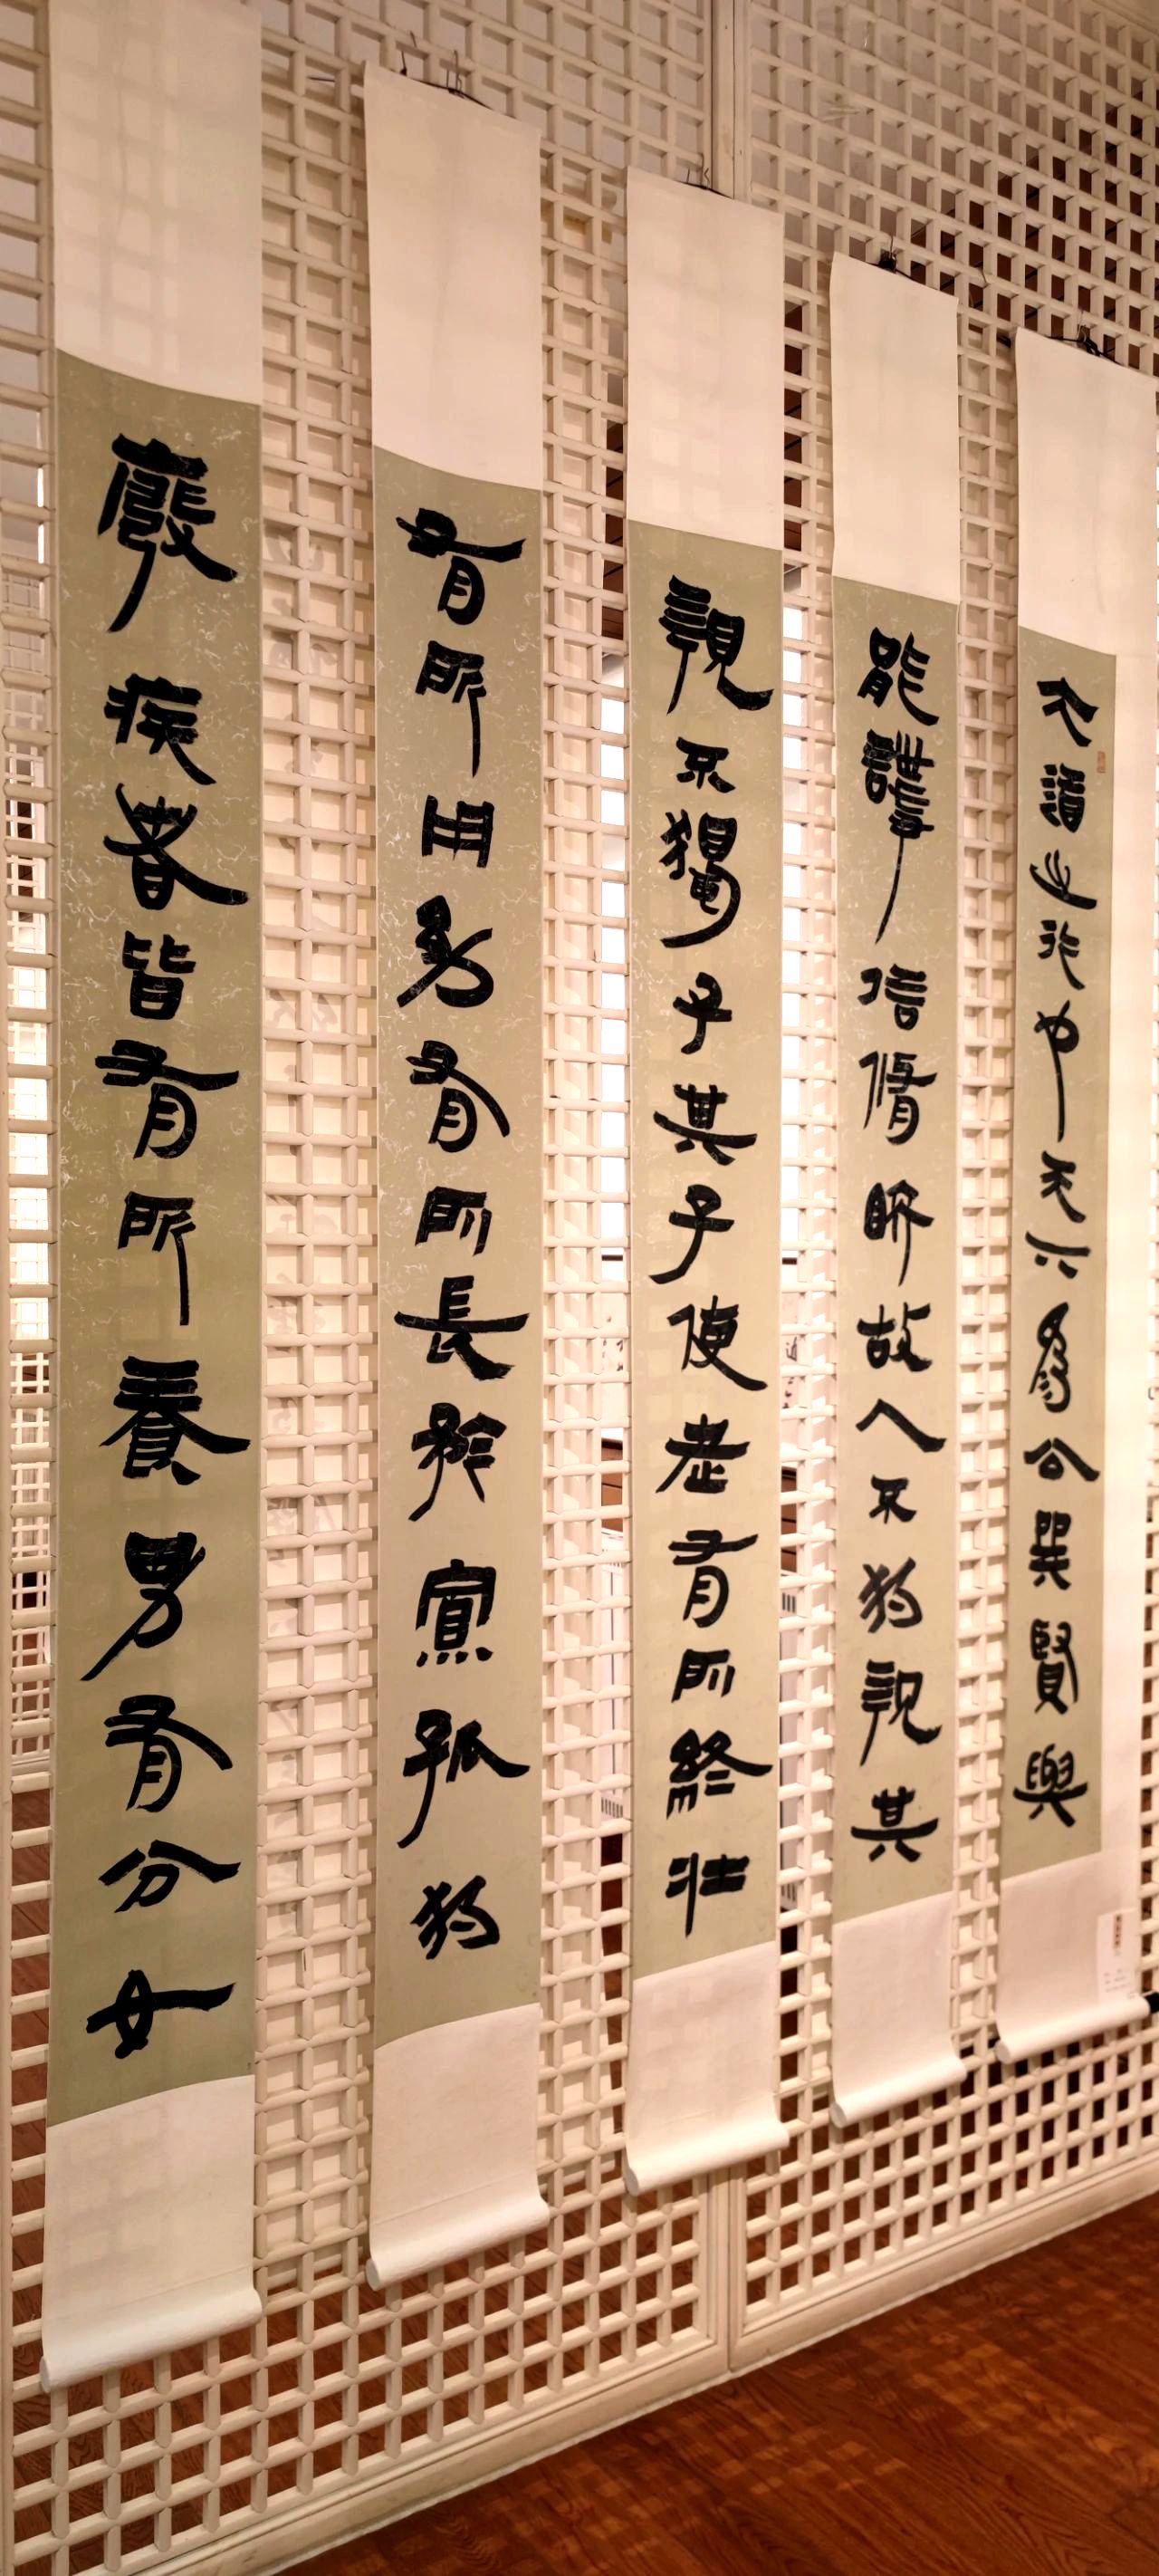 大道之行也天下為公選賢與
能講信脩睦故人不獨親其
親不獨子其子使老有所終壯
有所用幼有所長矜寡孤獨
廢疾者皆有所養男有分女